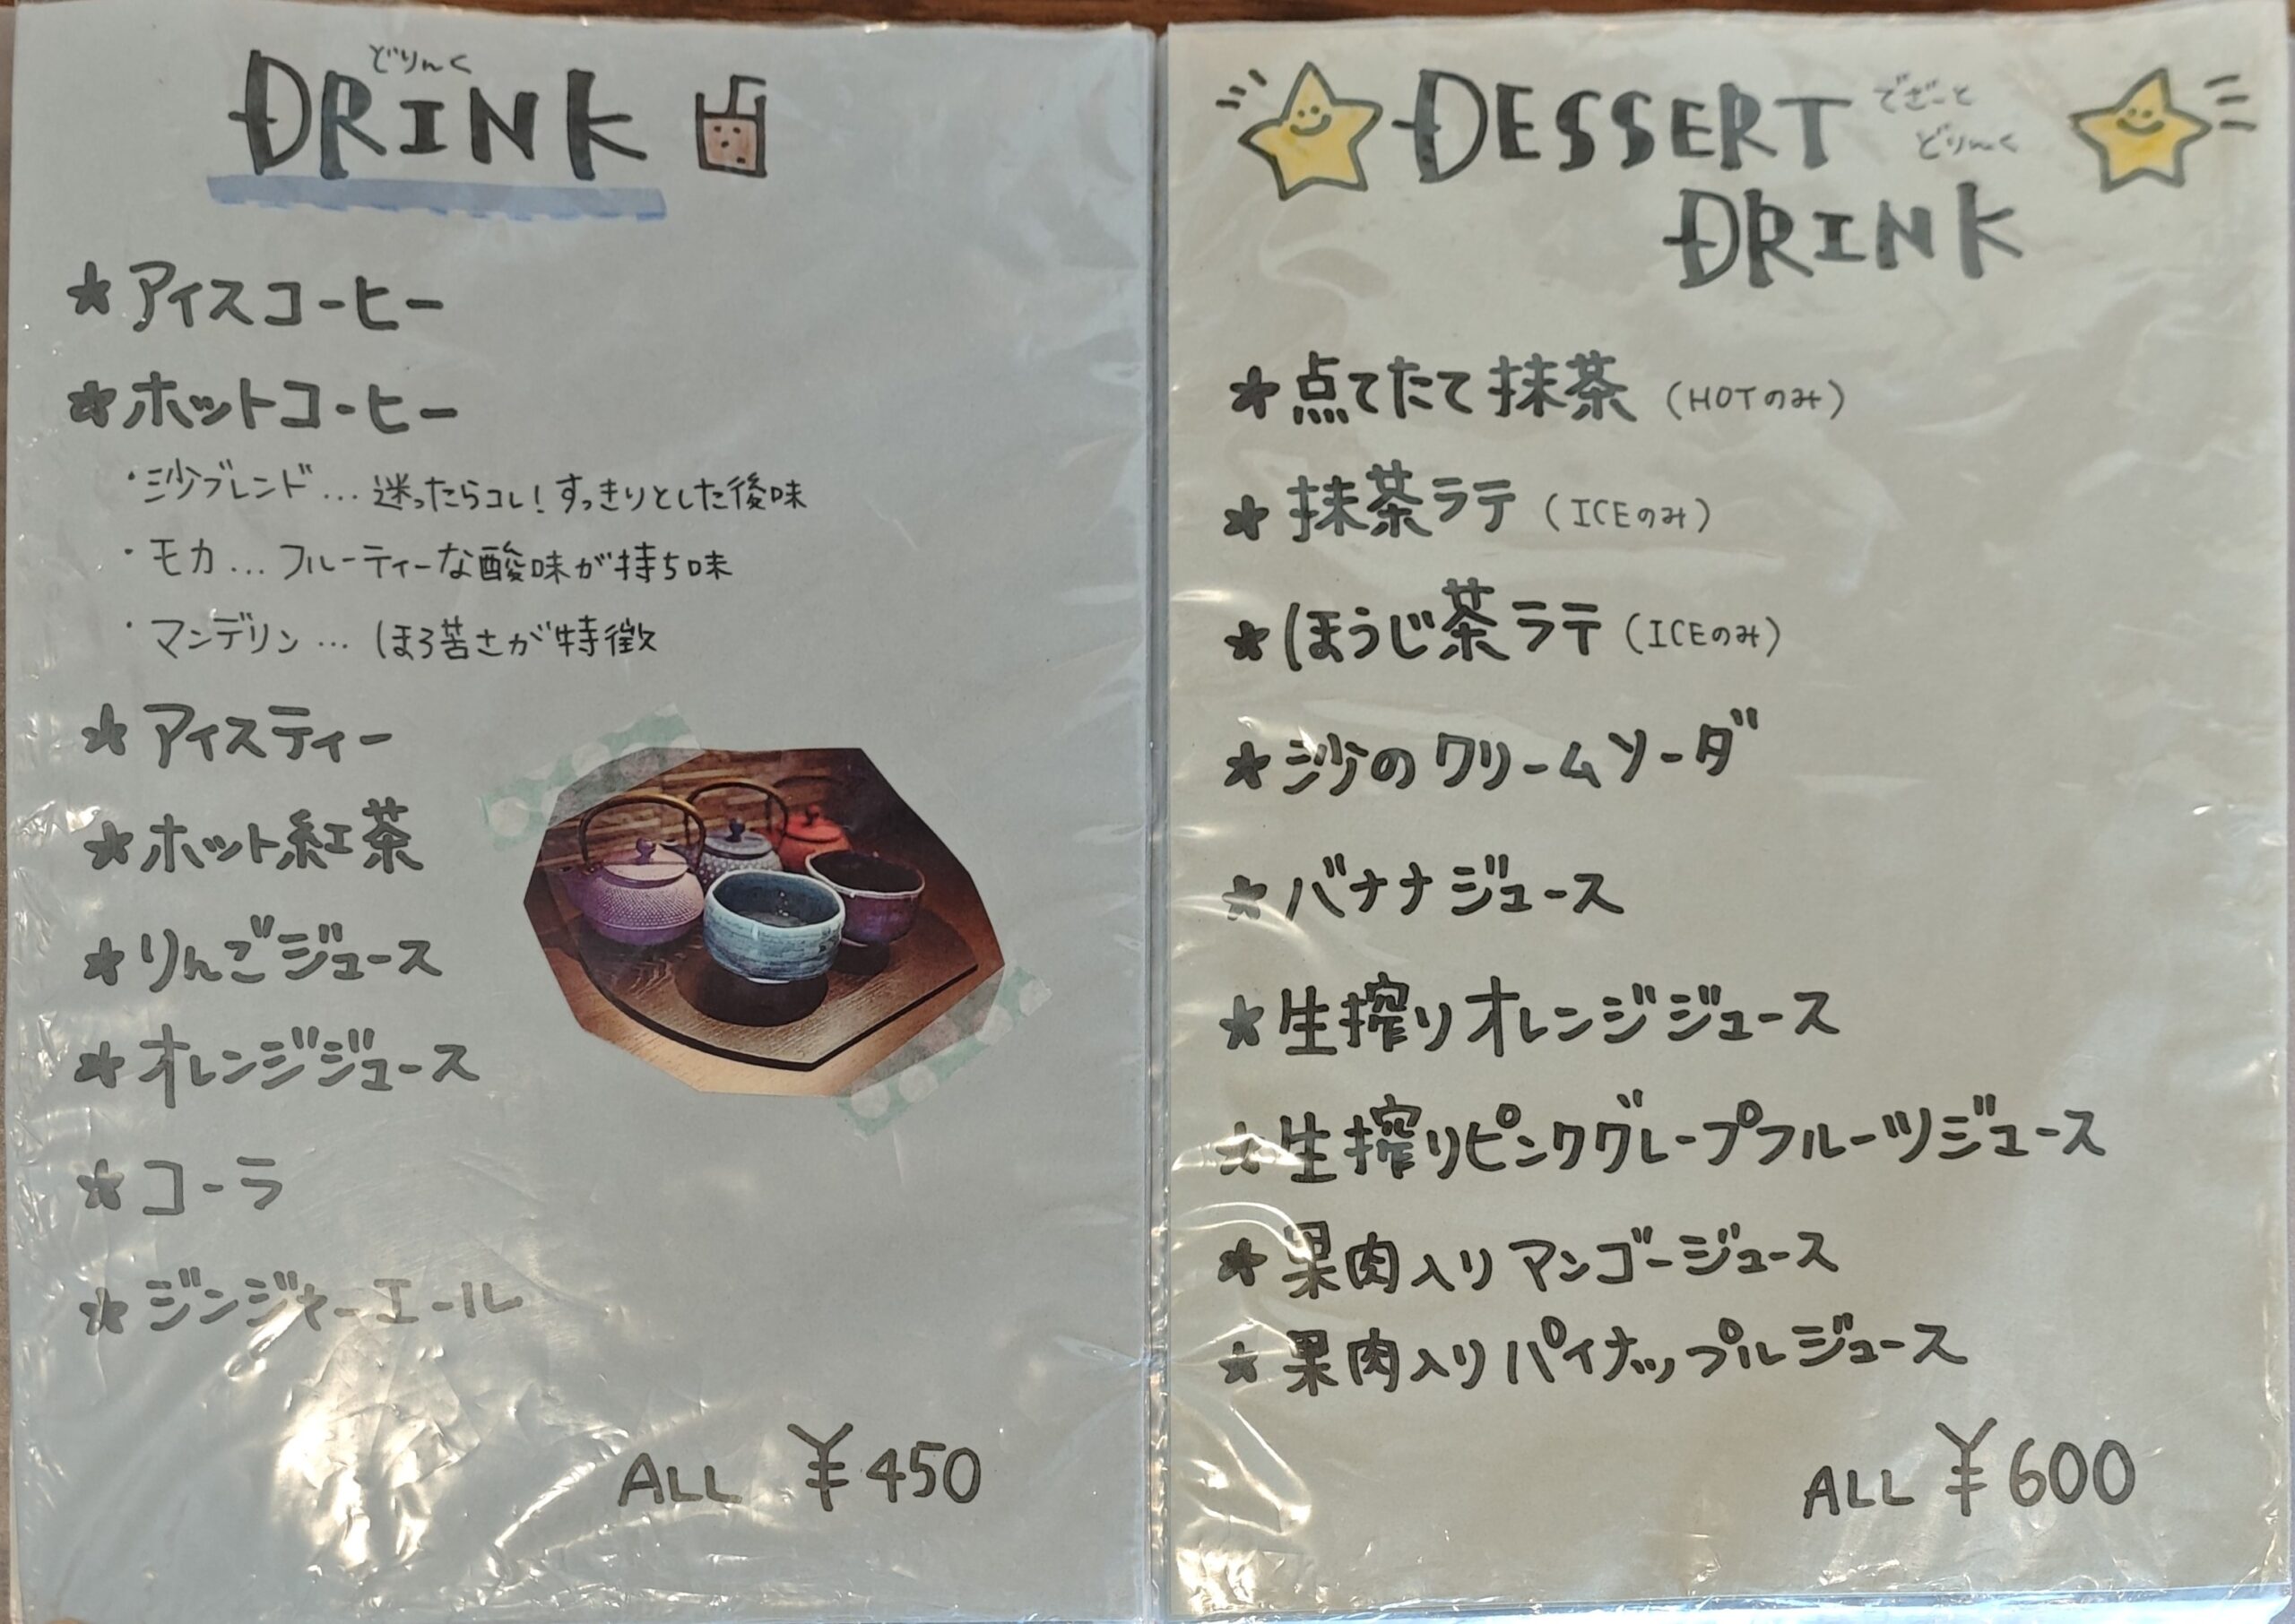 どりんく
DRINK
★アイスコーヒー
★ホットコーヒー
・沙ブレンド…迷ったらコレ！すっきりとした後味
・モカ…フルーティーな酸味が持ち味
・マンデリン…ほろ苦さが特徴
★アイスティー
★ホット紅茶
★りんごジュース
★オレンジジュース
★コーラ
★ジンジャーエール
ALL ¥450
DESSERT でざーと
どりんく
DRINK
★点てたて抹茶（HOTのみ）
★抹茶ラテ（ICEのみ）
★ほうじ茶ラテ（ICEのみ）
★沙のクリームソーダ
★バナナジュース
★生搾りオレンジジュース
★生搾りピンクグレープフルーツジュース
★果肉入りマンゴージュース
★果肉入りパイナップルジュース
ALL ¥600